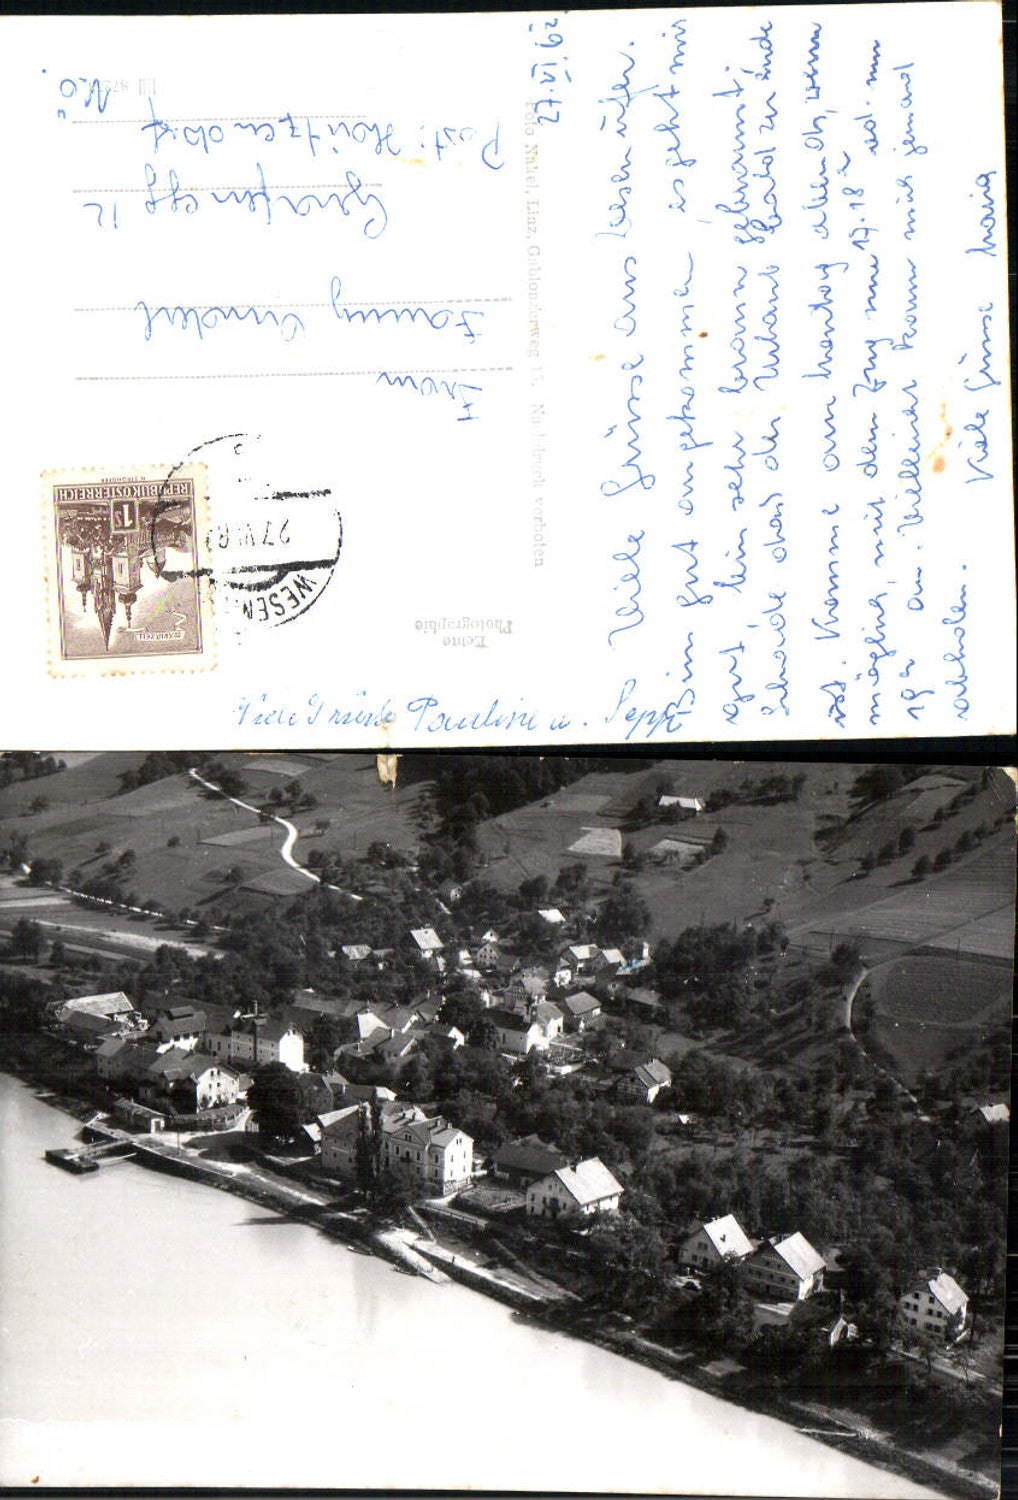 27.VI.62
Viele Grüsse aus Wesenufer.
Bin gut angekommen es geht mir
gut bin sehr braun gebrannt;
Schade das der Urlaub bald zu Ende
ist. Komme am Montag abends, wenn
möglich, mit dem Zug um 17.18h od. um
19h an. Vielleicht kann mich jemand
abholen.
Viele Grüsse Maria
Viele Grüße Pauline u. Sepp
Frau
Fanny
Grafenegg 12
Post: Haitzendorf
N.Ö.
Foto Nakel, Linz, Gablonzerweg 15. Nachdruck verboten
Echte
Photographie
REPUBLIK ÖSTERREICH
1S
MARIAZELL
WESEN
27.VI.62